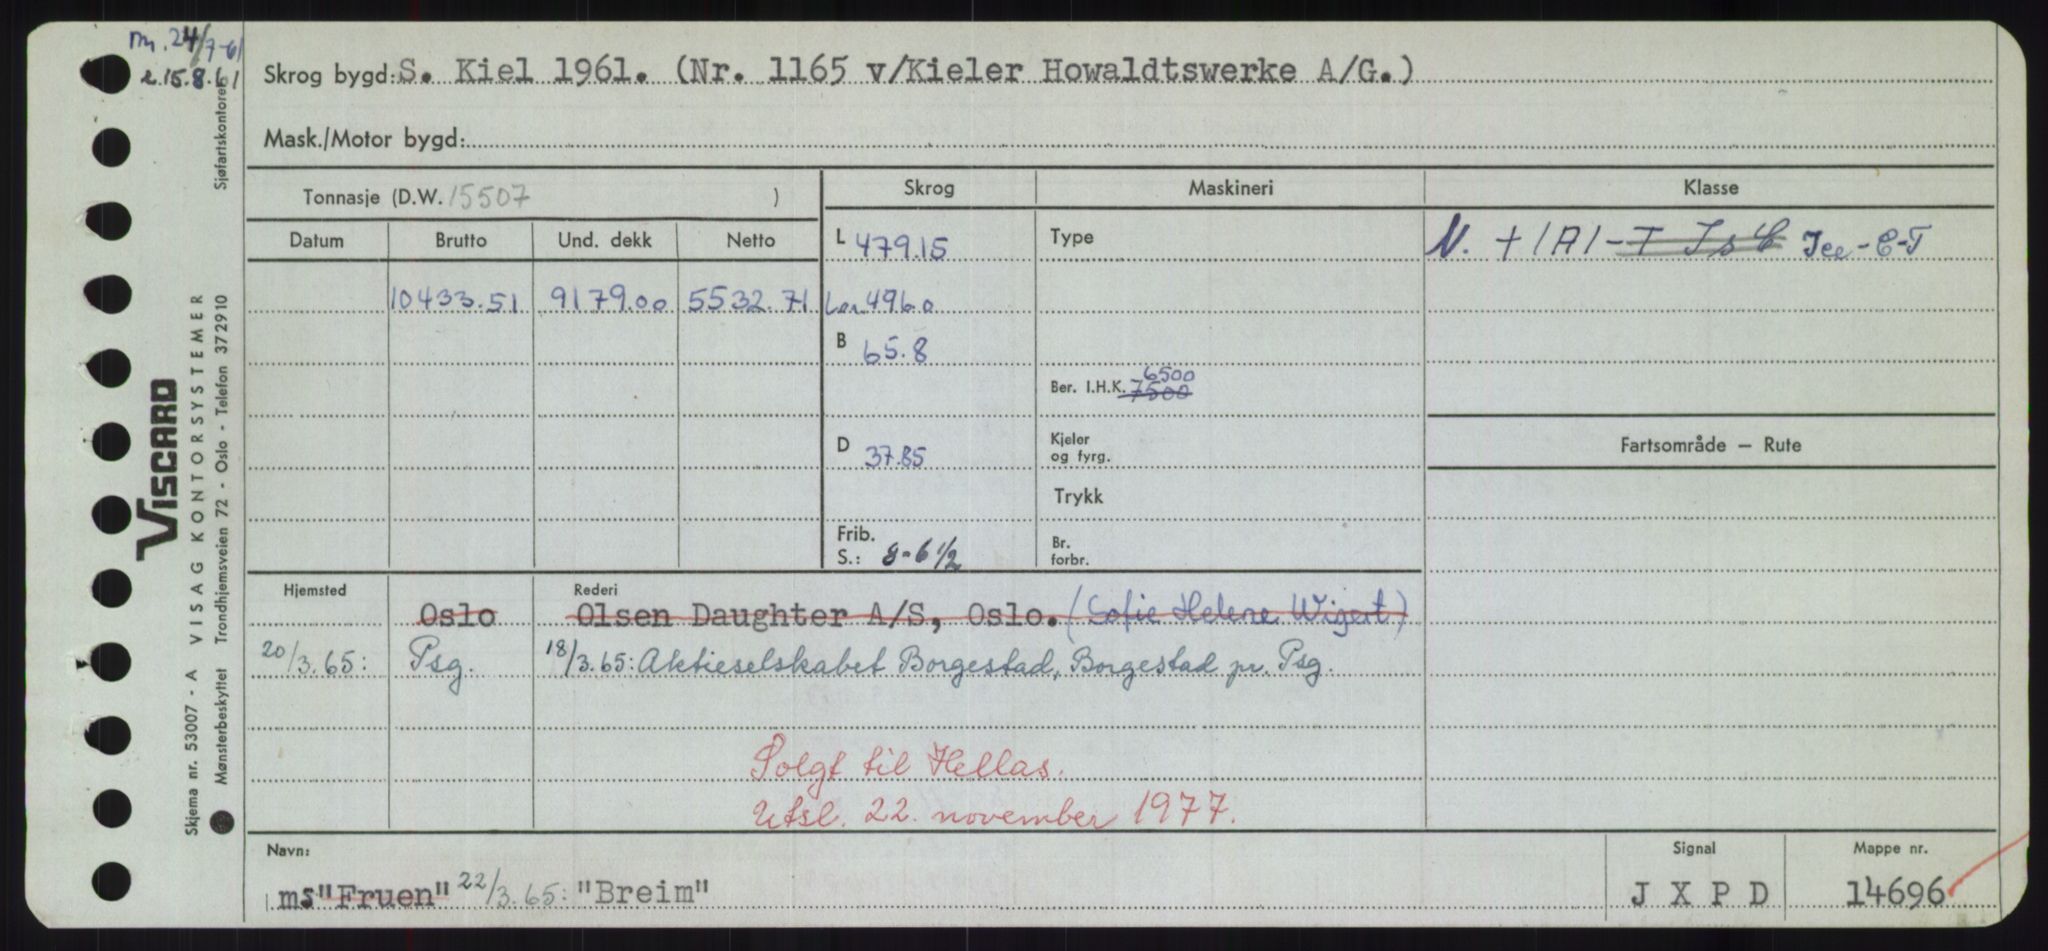 m. 24/7-61
e. 15.8.61
Sjøfartskontoret
VISCARD
A VISAG KONTORSYSTEMER
Trondhjemsveien 72 - Oslo - Telefon 372910
Skjema nr. 53007 -
Mønsterbeskyttet
Skrog bygd: S. Kiel 1961. (Nr. 1165 v/Kieler Howaldtswerke A/G.)
Mask./Motor bygd:
Tonnasje (D.W. 15507 )
Skrog Maskineri Klasse
Datum Brutto Und. dekk Netto
L 479.15
Type
N. + 1A1 - T Is C Ice-C-T
10433.51 9179.00 5532.71
Loa 496.0
B 65.8
6500
Ber. I.H.K. 7500
D 37.85
Kjeler
og fyrg.
Fartsområde — Rute
Trykk
Frib.
S.: 8-6 1/2
Br.
forbr.
Hjemsted Rederi
Oslo Olsen Daughter A/S, Oslo. (Sofie Helene Wigert)
20/3.65: Psg. 18/3.65: Aktieselskabet Borgestad, Borgestad pr. Psg.
Solgt til Hellas.
Utsl. 22. november 1977.
Navn: Signal Mappe nr.
ms "Fruen" 22/3.65: "Breim" JXPD 14696